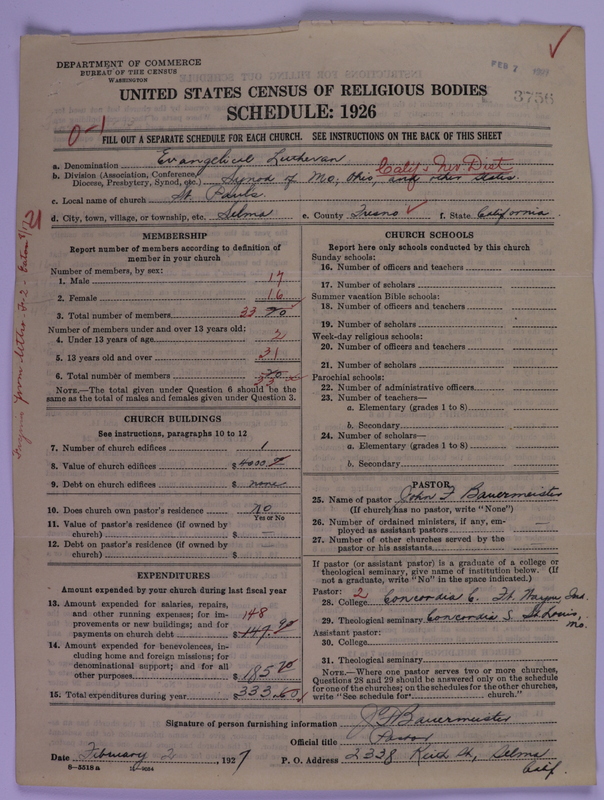 DEPARTMENT OF COMMERCE
BUREAU OF THE CENSUS
WASHINGTON
FEB 7 1927
3756
UNITED STATES CENSUS OF RELIGIOUS BODIES
SCHEDULE: 1926
0-1
FILL OUT A SEPARATE SCHEDULE FOR EACH CHURCH. SEE INSTRUCTIONS ON THE BACK OF THIS SHEET
a. Denomination Evangelical Lutheran
b. Division (Association, Conference, Calif & Nev. Dist
Diocese, Presbytery, Synod, etc.) Synod of Mo, Ohio, and other states.
c. Local name of church St. Pauls
d. City, town, village, or township, etc. Selma e. County Fresno f. State California
MEMBERSHIP
Report number of members according to definition of
member in your church
Number of members, by sex:
1. Male 17
2. Female 16
3. Total number of members 33
Number of members under and over 13 years old:
4. Under 13 years of age 2
5. 13 years old and over 31
6. Total number of members 33
NOTE.—The total given under Question 6 should be the
same as the total of males and females given under Question 3.
CHURCH BUILDINGS
See instructions, paragraphs 10 to 12
7. Number of church edifices 1
8. Value of church edifices $4000.
9. Debt on church edifices $ none
10. Does church own pastor's residence no
Yes or No
11. Value of pastor's residence (if owned by
church) $ —
12. Debt on pastor's residence (if owned by
church) $
EXPENDITURES
Amount expended by your church during last fiscal year
13. Amount expended for salaries, repairs,
and other running expenses; for im- 148
provements or new buildings; and for
payments on church debt $147.90
14. Amount expended for benevolences, in-
cluding home and foreign missions; for
denominational support; and for all
other purposes $185.70
15. Total expenditures during year $333.60
CHURCH SCHOOLS
Report here only schools conducted by this church
Sunday schools:
16. Number of officers and teachers
17. Number of scholars
Summer vacation Bible schools:
18. Number of officers and teachers
19. Number of scholars
Week-day religious schools:
20. Number of officers and teachers
21. Number of scholars
Parochial schools:
22. Number of administrative officers
23. Number of teachers—
a. Elementary (grades 1 to 8)
b. Secondary
24. Number of scholars—
a. Elementary (grades 1 to 8)
b. Secondary
PASTOR
25. Name of pastor John F Bauermeister
(If church has no pastor, write "None")
26. Number of ordained ministers, if any, em-
ployed as assistant pastors —
27. Number of other churches served by the
pastor or his assistants
If pastor (or assistant pastor) is a graduate of a college or
theological seminary, give name of institution below. (If
not a graduate, write "No" in the space indicated.)
Pastor: 2
28. College Concordia C. Ft. Wayne Ind.
29. Theological seminary Concordia S. St. Louis, Mo.
Assistant pastor:
30. College
31. Theological seminary
NOTE.—Where one pastor serves two or more churches,
Questions 28 and 29 should be answered only on the schedule
for one of the churches; on the schedules for the other churches,
write "See schedule for church."
Signature of person furnishing information J F Bauermeister
Official title Pastor
Date February 2, 1927 P. O. Address 2338 Keith St, Selma
Calif.
8—5518 a